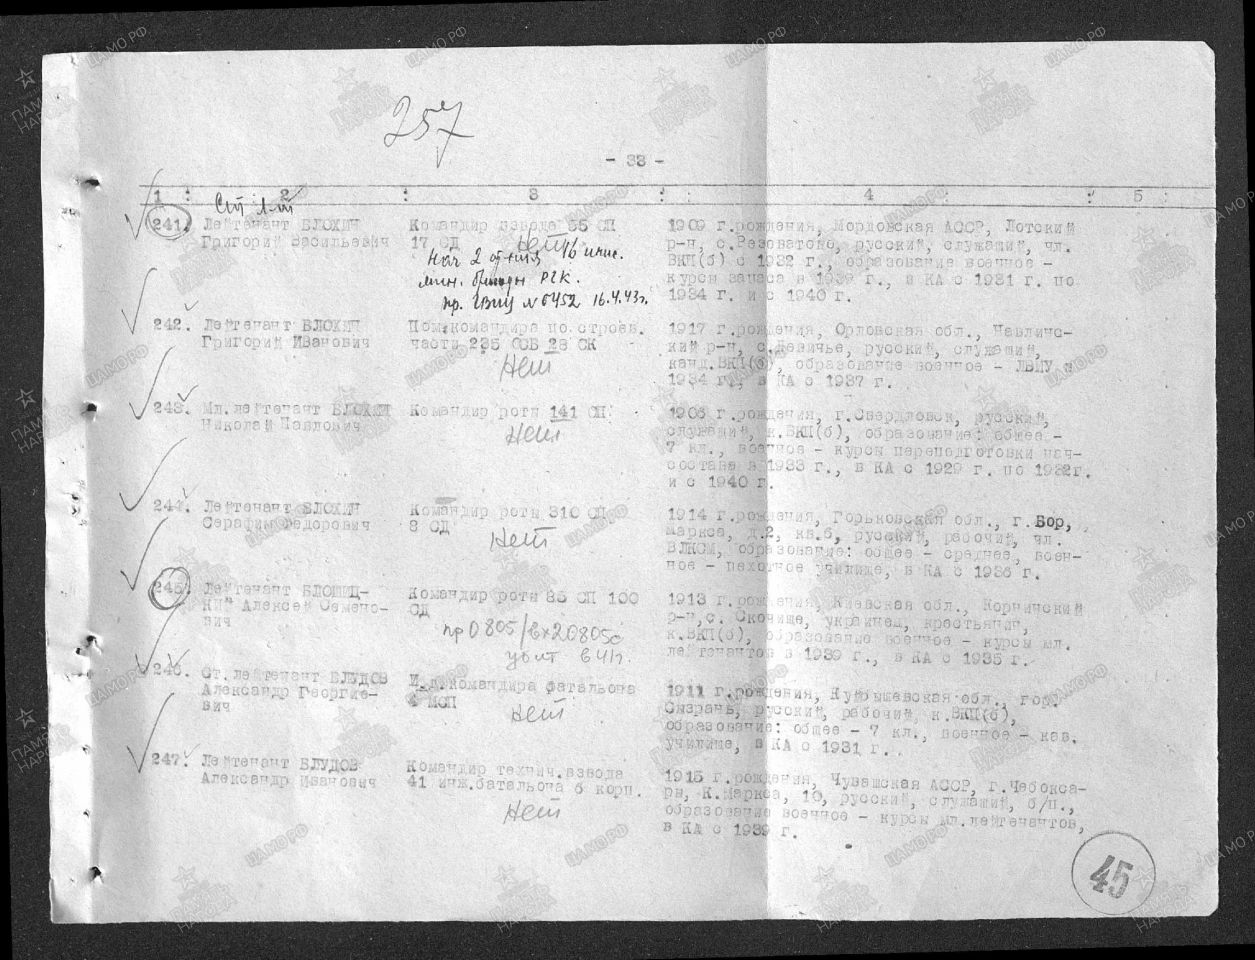 257
- 33 -
1 : 2 : 3 : 4 : 5 :
Ст л-т
241. Лейтенант БЛОХИН
Григорий Васильевич
Командир взвода 55 СП
17 СД
Нет
Нач 2 отд-ния 16 инж.
мин. бригады РГК.
пр. ГВИУ № 0452 16.4.43г.
1909 г.рождения, Мордовская АССР,
р-н, с.Резоватово, русский, служащий, чл.
ВКП(б) с 1932 г., образование военное -
курсы запаса в 1939 г., в КА с 1931 г. по
1934 г. и с 1940 г.
242. Лейтенант БЛОХИН
Григорий Иванович
Пом.командира по строев.
части 235 ОСБ 28 СК
Нет
1917 г.рождения, Орловская обл., Чавлинс-
кий р-н, с.Девичье, русский, служащий,
канд.ВКП(б), образование военное - ЛВШУ в
1934 г., в КА с 1937 г.
243. Мл.лейтенант БЛОХИН
Николай Павлович
Командир роты 141 СП
Нет
1906 г.рождения, г.Свердловск, русский,
служащий, к.ВКП(б), образование: общее -
7 кл., военное - курсы переподготовки нач-
состава в 1933 г., в КА с 1929 г. по 1932г.
и с 1940 г.
244. Лейтенант БЛОХИН
Серафим Федорович
Командир роты 310 СП
8 СД
Нет
1914 г.рождения, Горьковская обл., г.Бор,
Маркса, д.2, кв.6, русский, рабочий, чл.
ВЛКСМ, образование: общее - среднее, воен-
ное - пехотное училище, в КА с 1936 г.
245. Лейтенант БЛОШИЦ-
КИЙ Алексей Семено-
вич
Командир роты 85 СП 100
СД
пр 0805/вх20805с
убит в 41г.
1913 г.рождения, Киевская обл., Корнинский
р-н,с. Скочище, украинец, крестьянин,
к.ВКП(б), образование военное - курсы мл.
лейтенантов в 1939 г., в КА с 1935 г.
246. Ст.лейтенант БЛУДОВ
Александр Георгие-
вич
И.д.командира батальона
4 МСП
Нет
1911 г.рождения, Куйбышевская обл., гор.
Сызрань, русский, рабочий, к.ВКП(б),
образование: общее - 7 кл., военное - кав.
училище, в КА с 1931 г.
247. Лейтенант БЛУДОВ
Александр Иванович
Командир технич.взвода
41 инж.батальона 6 корп.
Нет
1915 г.рождения, Чувашская АССР, г.Чебокса-
ры, К.Маркса, 10, русский, служащий, б/п.,
образование военное - курсы мл.лейтенантов,
в КА с 1939 г.
45